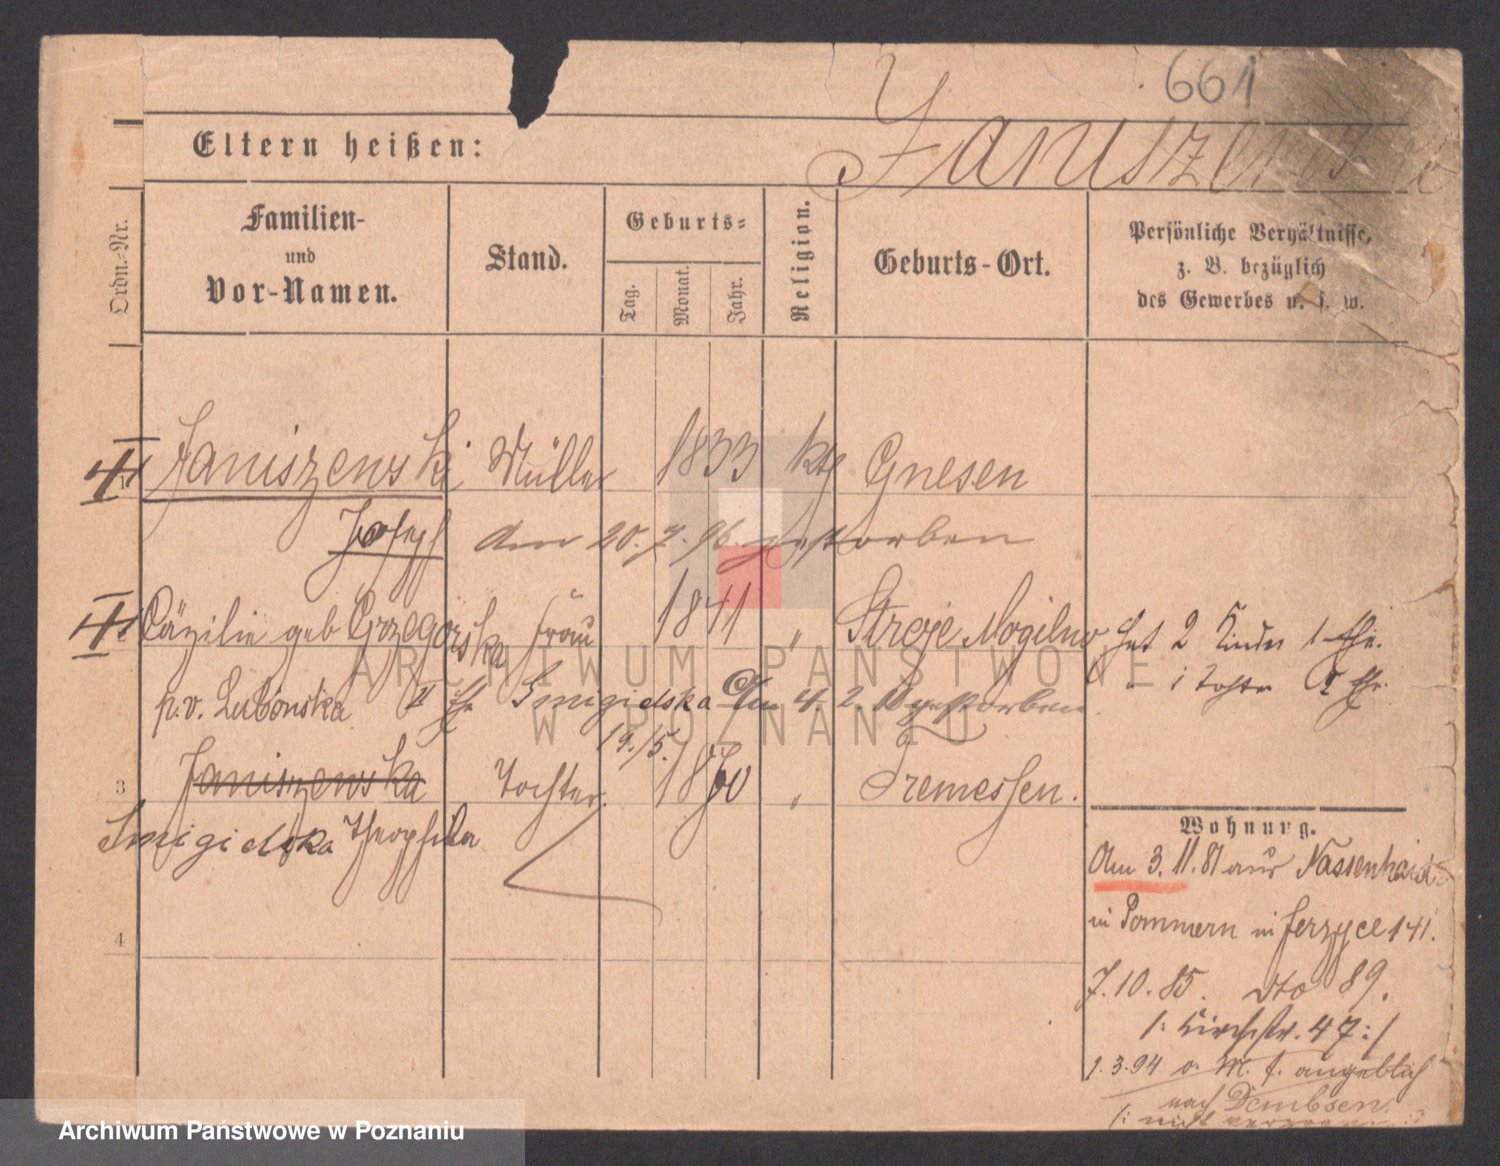 661
Eltern heißen:
Januszewski
Ordn.-Nr.
Familien-
und
Vor-Namen.
Stand.
Geburts-
Tag.
Monat.
Jahr.
Religion.
Geburts-Ort.
Persönliche Verhältnisse,
z. B. bezüglich
des Gewerbes u. s. w.
1 Januszewski Müller 1833 ktg Gnesen
Joseph am 20.7.96 gestorben
Cäzilie geb Grzegorska Frau 1841 " Mogilno Hat 2 Kinder 1 Ehe.
p. v. Lubonska II Ehe Smigielska Am 4. 2. gestorben
" 1 Tochter Ehe.
19./5.
3 Januszewska Tochter 1870 " Tremessen.
Smigielska Theophila
4
Wohnung.
Am 3. 11. 81 aus Nassenhaide
in Pommern in Jerzyce 141.
7. 10. 85. dto 89.
/: Kirchstr. 47 :/
1. 3. 94 angeblich
nach Dembsen.
/: nicht
ARCHIWUM PAŃSTWOWE
W POZNANIU
Archiwum Państwowe w Poznaniu